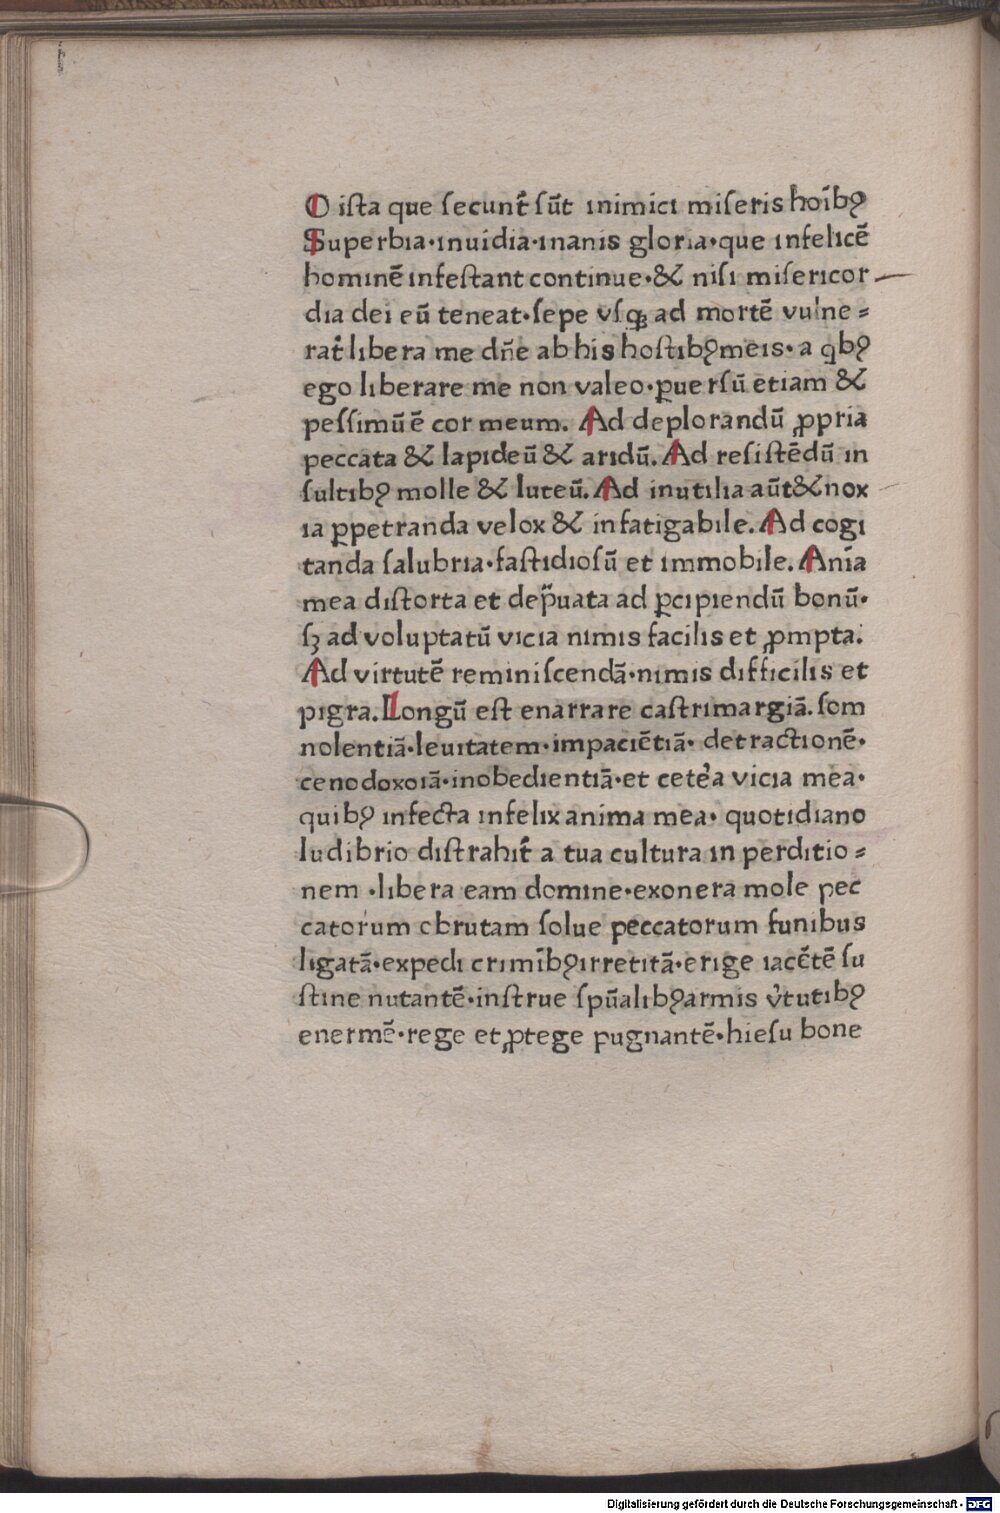 O iſta que ſecunt᷑ ſūt inimici miſeris hoīb⁹
Superbia·inuidia·inanis gloria·que infelicē
hominē infeſtant continue·& niſi miſericor
dia dei eū teneat·ſepe vſqꝫ ad mortē vulne⸗
rat᷑ libera me dn̄e ab his hoſtib⁹ meis·a qb⁹
ego liberare me non valeo·ꝑuerſū etiam &
peſſimū ē cor meum. Ad deplorandū ꝓpria
peccata & lapideū & aridū. Ad reſiſtēdū in
ſultib⁹ molle & luteū. Ad inutilia aūt & nox
ia ꝑpetranda velox & infatigabile. Ad cogi
tanda ſalubria·faſtidioſū et immobile. Anīa
mea diſtorta et dep̄uata ad ꝑcipiendū bonū·
ſꝫ ad voluptatū vicia nimis facilis et ꝓmpta.
Ad virtutē reminiſcendā·nimis difficilis et
pigra. Longū eſt enarrare caſtrimargiā. ſom
nolentiā·leuitatem·impaciētiā· detractionē·
cenodoxoiā·inobedientiā·et ceteꝛa vicia mea·
quib⁹ infecta infelix anima mea· quotidiano
ludibrio diſtrahit᷑ a tua cultura in perditio⸗
nem ·libera eam domine·exonera mole pec
catorum cbrutam ſolue peccatorum funibus
ligatā·expedi crimīb⁹ irretitā·erige iacētē ſu
ſtine nutantē·inſtrue ſpūalib⁹ armis v̓tutib⁹
enermē·rege et ꝓtege pugnantē·hieſu bone
Digitalisierung gefördert durch die Deutsche Forschungsgemeinschaft - DFG